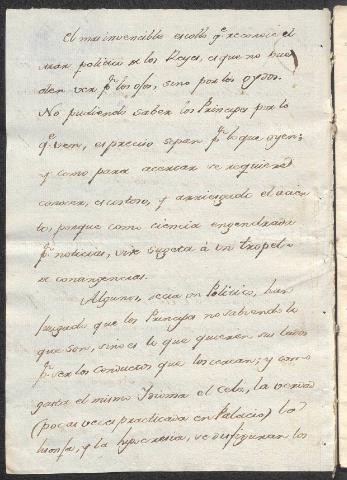 El mas invencible escollo q.e reconoce el
mar politico de los Reyes, es que no pue
den ver p.r los ojos, sino por los oydos.
No pudiendo saber los Principes por lo
q.e ven, es preciso sepan p.r lo que oyen;
y como para acertar se requiere
conocer, es costoso, y arriesgado el acier
to, porque como ciencia engendrada
p.r noticias, vive sugeta à un tropel
de contingencias.
Algunos, decia un Politico, han
juzgado que los Principes no sabiendo lo
que son, sino es lo que quieren sus lados
p.r ser los conductos que los cercan; y como
gasta el mismo Idioma el Celo, la verdad
(pocas veces practicada en Palacio) la
lisonja, y la hipocresia, se desfiguran los